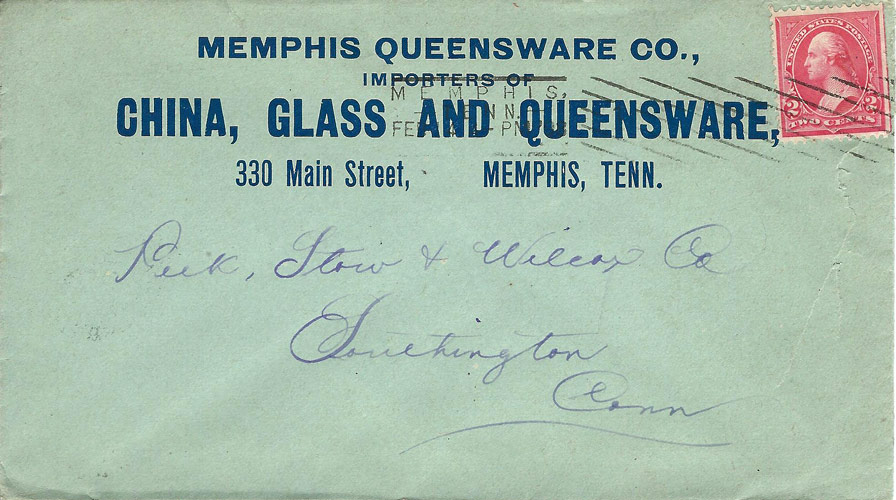 MEMPHIS QUEENSWARE CO.,
IMPORTERS OF
CHINA, GLASS AND QUEENSWARE,
330 Main Street, MEMPHIS, TENN.
MEMPHIS,
TENN.
UNITED STATES POSTAGE
2 2
TWO CENTS
Peck, Stow & Wilcox Co
Southington
Conn